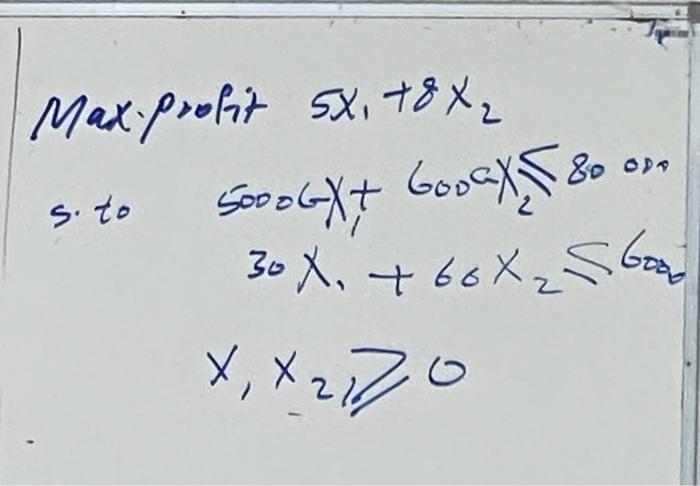 Max. profit 5X₁ + 8X₂
s. to 5000GX₁ + 600GX₂ ≤ 80 000
30X₁ + 60X₂ ≤ 6000
X₁ X₂, ≥ 0